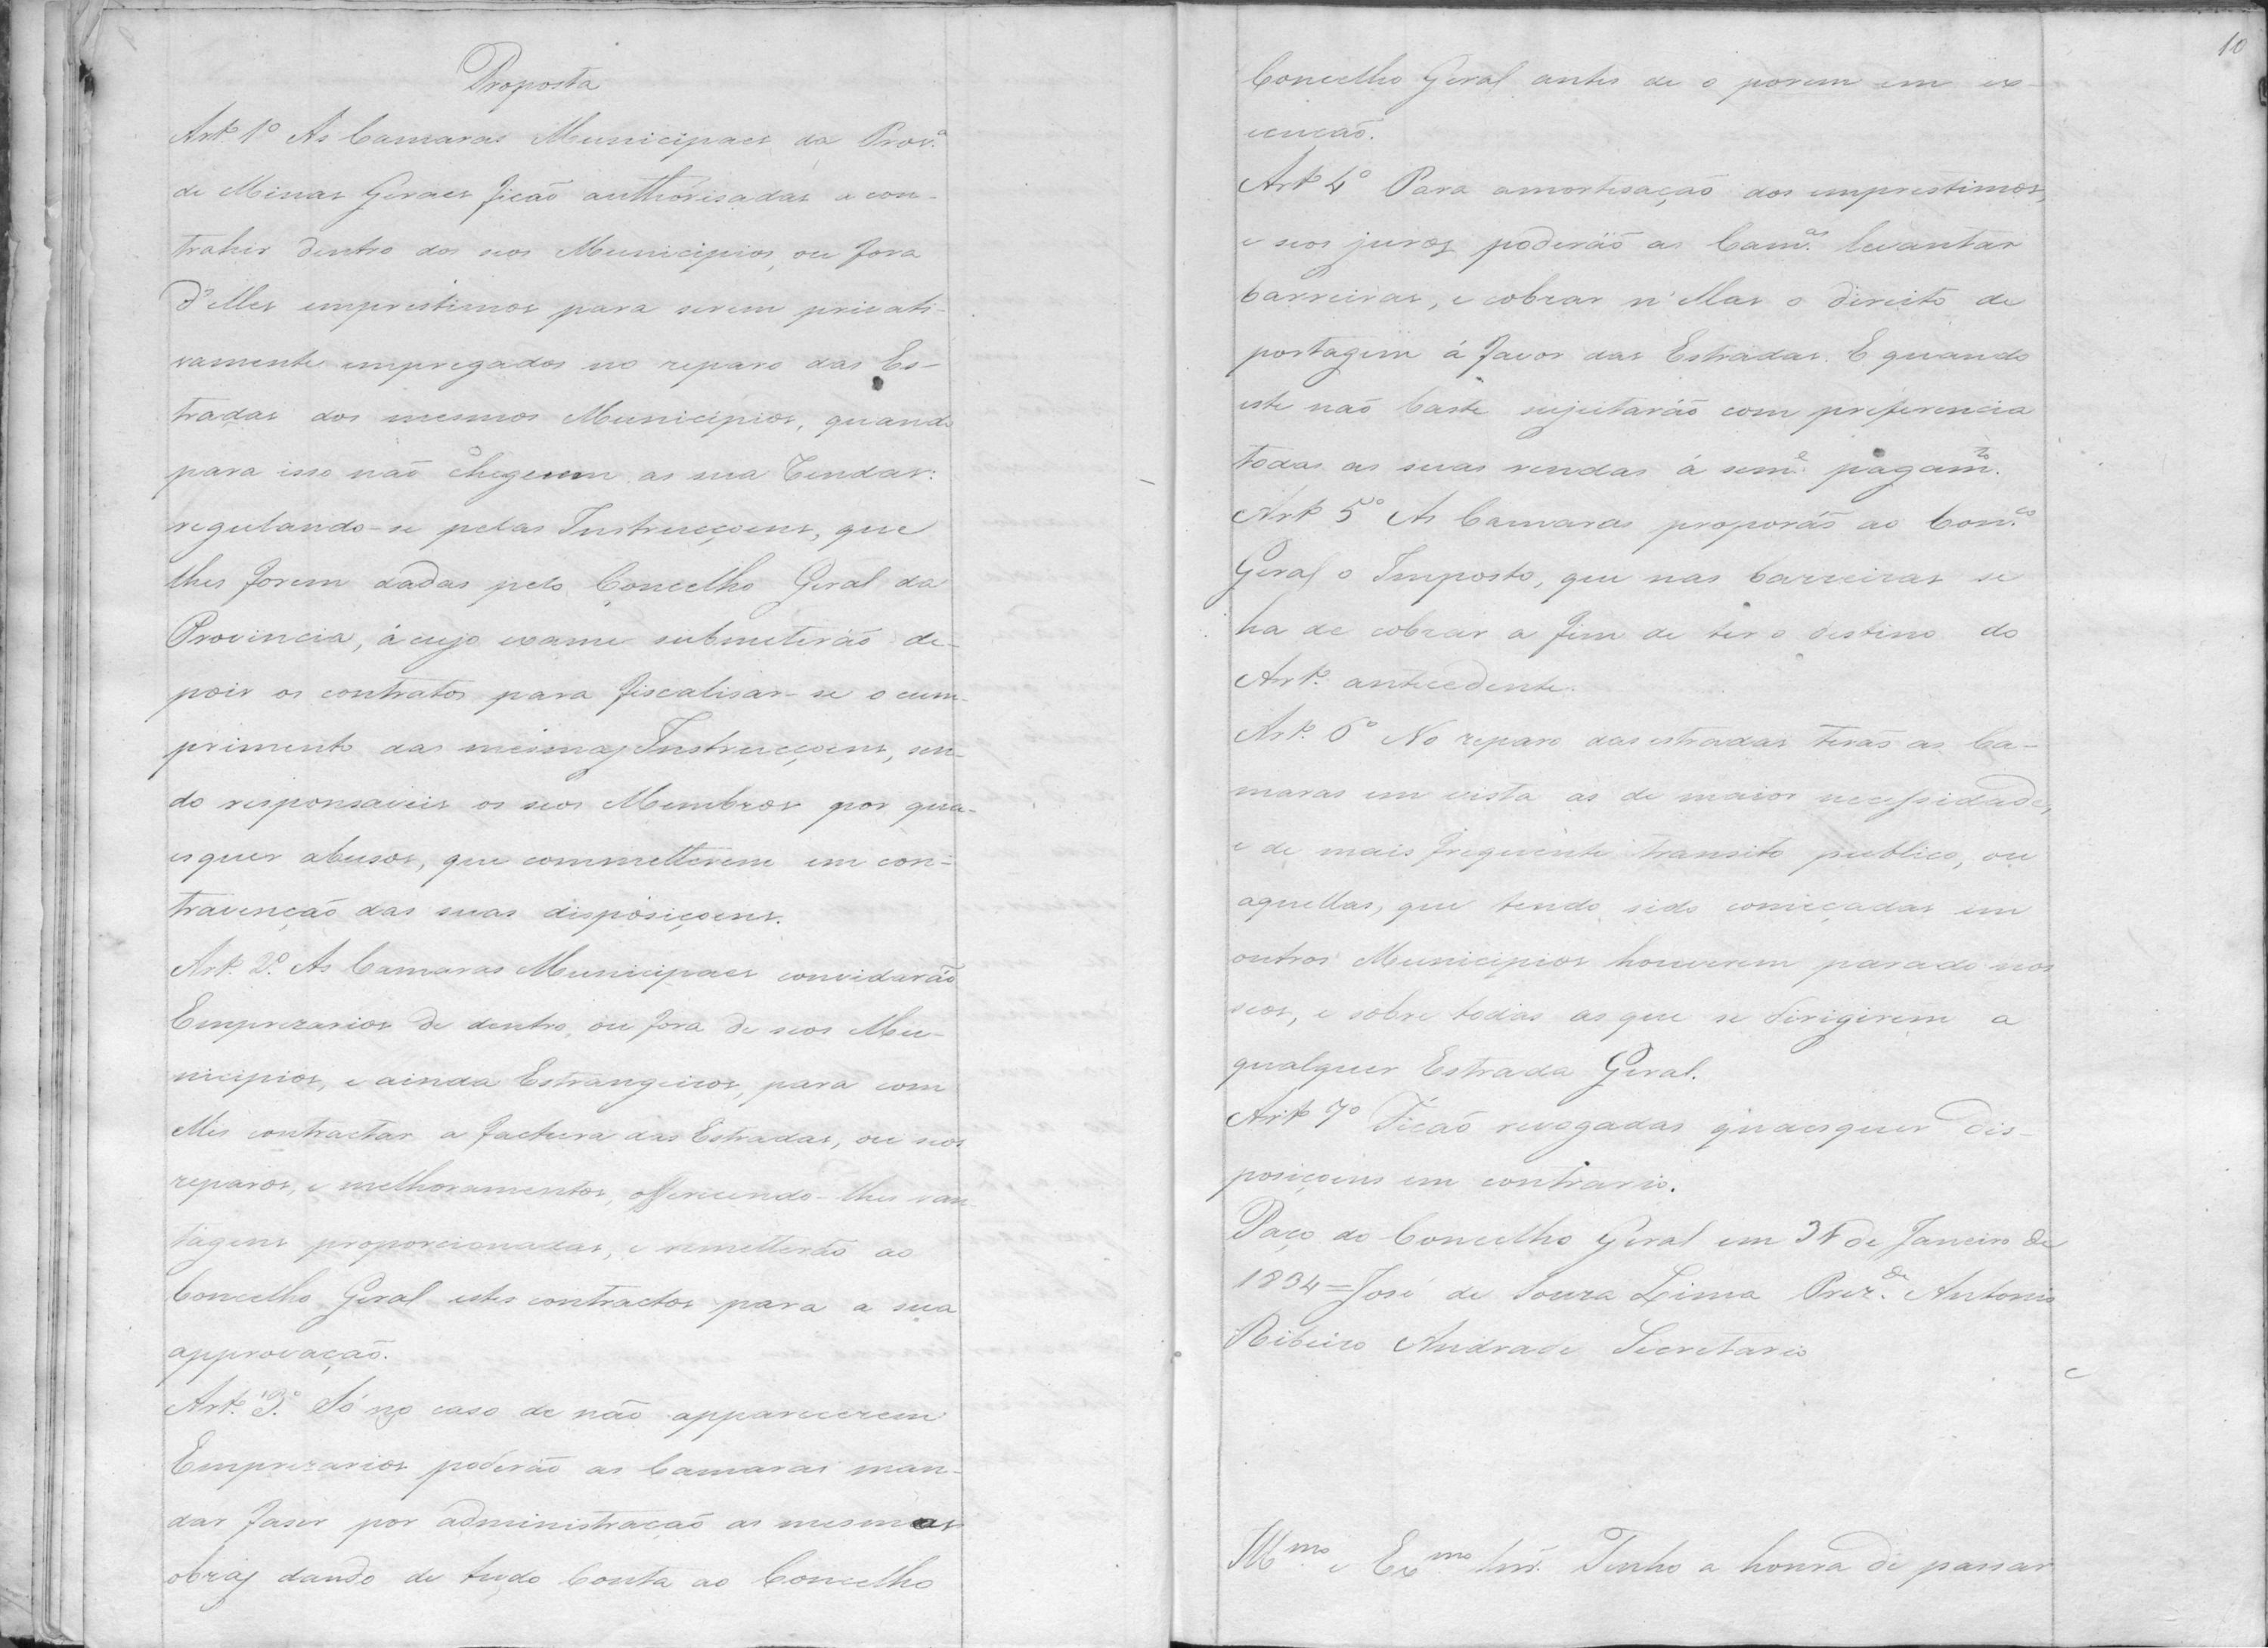 Proposta
Artº 1º As Camaras Municipaes da Provª
de Minas Geraes ficão authorisadas a con-
trahir dentro dos seos Municipios, ou fora
d'elles emprestimos para serem privati-
vamente empregados no reparo das Es-
tradas dos mesmos Municipios, quando
para isso não cheguem as sua Rendas:
regulando-se pelas Instrucçoens, que
lhes forem dadas pelo Concelho Geral da
Provincia, á cujo exame submeterão de-
pois os contratos para fiscalisar-se o cum-
primento das mesmas Instrucçoens, sen-
do responsaveis os seos Membros por qua-
esquer abusos, que commetterem em con-
travenção das suas disposiçoens.
Artº 2º. As Camaras Municipaes convidarão
Emprezarios de dentro, ou fora de seos Mu-
nicipios, e ainda Estrangeiros, para com
elles contractar a factura das Estradas, ou seos
reparos, e melhoramentos, offerecendo-lhes van-
tagens proporcionadas, e remetterão ao
Concelho Geral estes contractos para a sua
approvação.
Artº 3º. Só no caso de não apparecerem
Emprezarios poderão as Camaras man-
dar faser por administração as mesmas
obras dando de tudo Conta ao Concelho
10
Concelho Geral antes de o porem em ex-
ecução.
Artº 4º Para amortisação dos emprestimos,
e seos juros poderão as Camªs levantar
barreiras, e cobrar n'ellas o direito de
portagem á favor das Estradas. E quando
este não baste sujeitarão com preferencia
todas as suas rendas á semᵉ pagamᵗᵒ.
Artº 5º As Camaras proporão ao Conᶜᵒ
Geral o Imposto, que nas barreiras se
ha de cobrar a fim de ter o destino do
Artº antecedente.
Artº 6º No reparo das estradas terão as Ca-
maras em vista as de maior necessidade,
e de mais frequente transito publico, ou
aquellas, que tendo sido começadas em
outros Municipios houverem parado nos
seos, e sobre todas as que se dirigirem a
qualquer Estrada Geral.
Artº 7º Ficão revogadas quaesquer dis-
posiçoens em contrario.
Paço do Concelho Geral em 31 de Janeiro de
1834 = José de Souza Lima Prezᵈᵉ. Antonio
Ribeiro Andrade Secretario
Illᵐᵒ e Exᵐᵒ Snr. Tenho a honra de passar